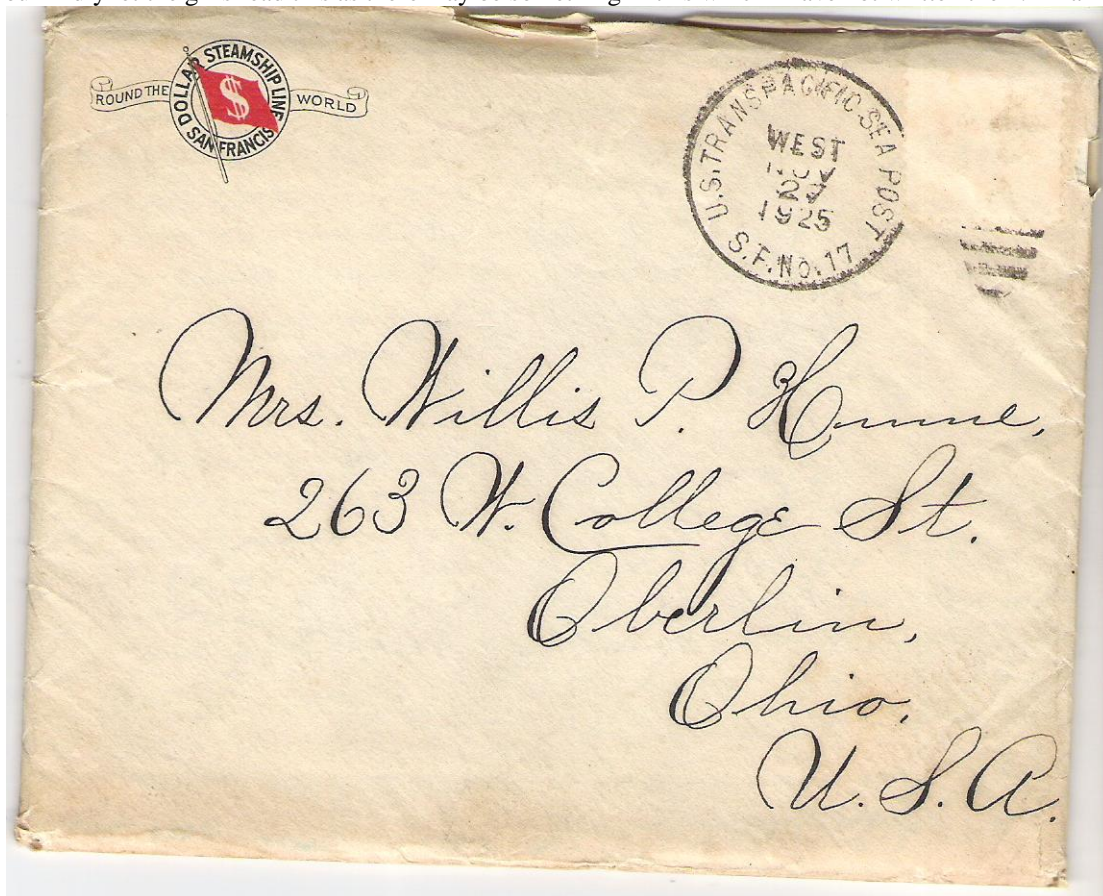 ROUND THE WORLD
DOLLAR STEAMSHIP LINE
$
SAN FRANCIS
U.S. TRANSPACIFIC SEA POST
WEST
NOV
1925
S.F. No. 17
Mrs. Willis P. Hume,
263 W. College St.
Oberlin,
Ohio,
U.S.A.